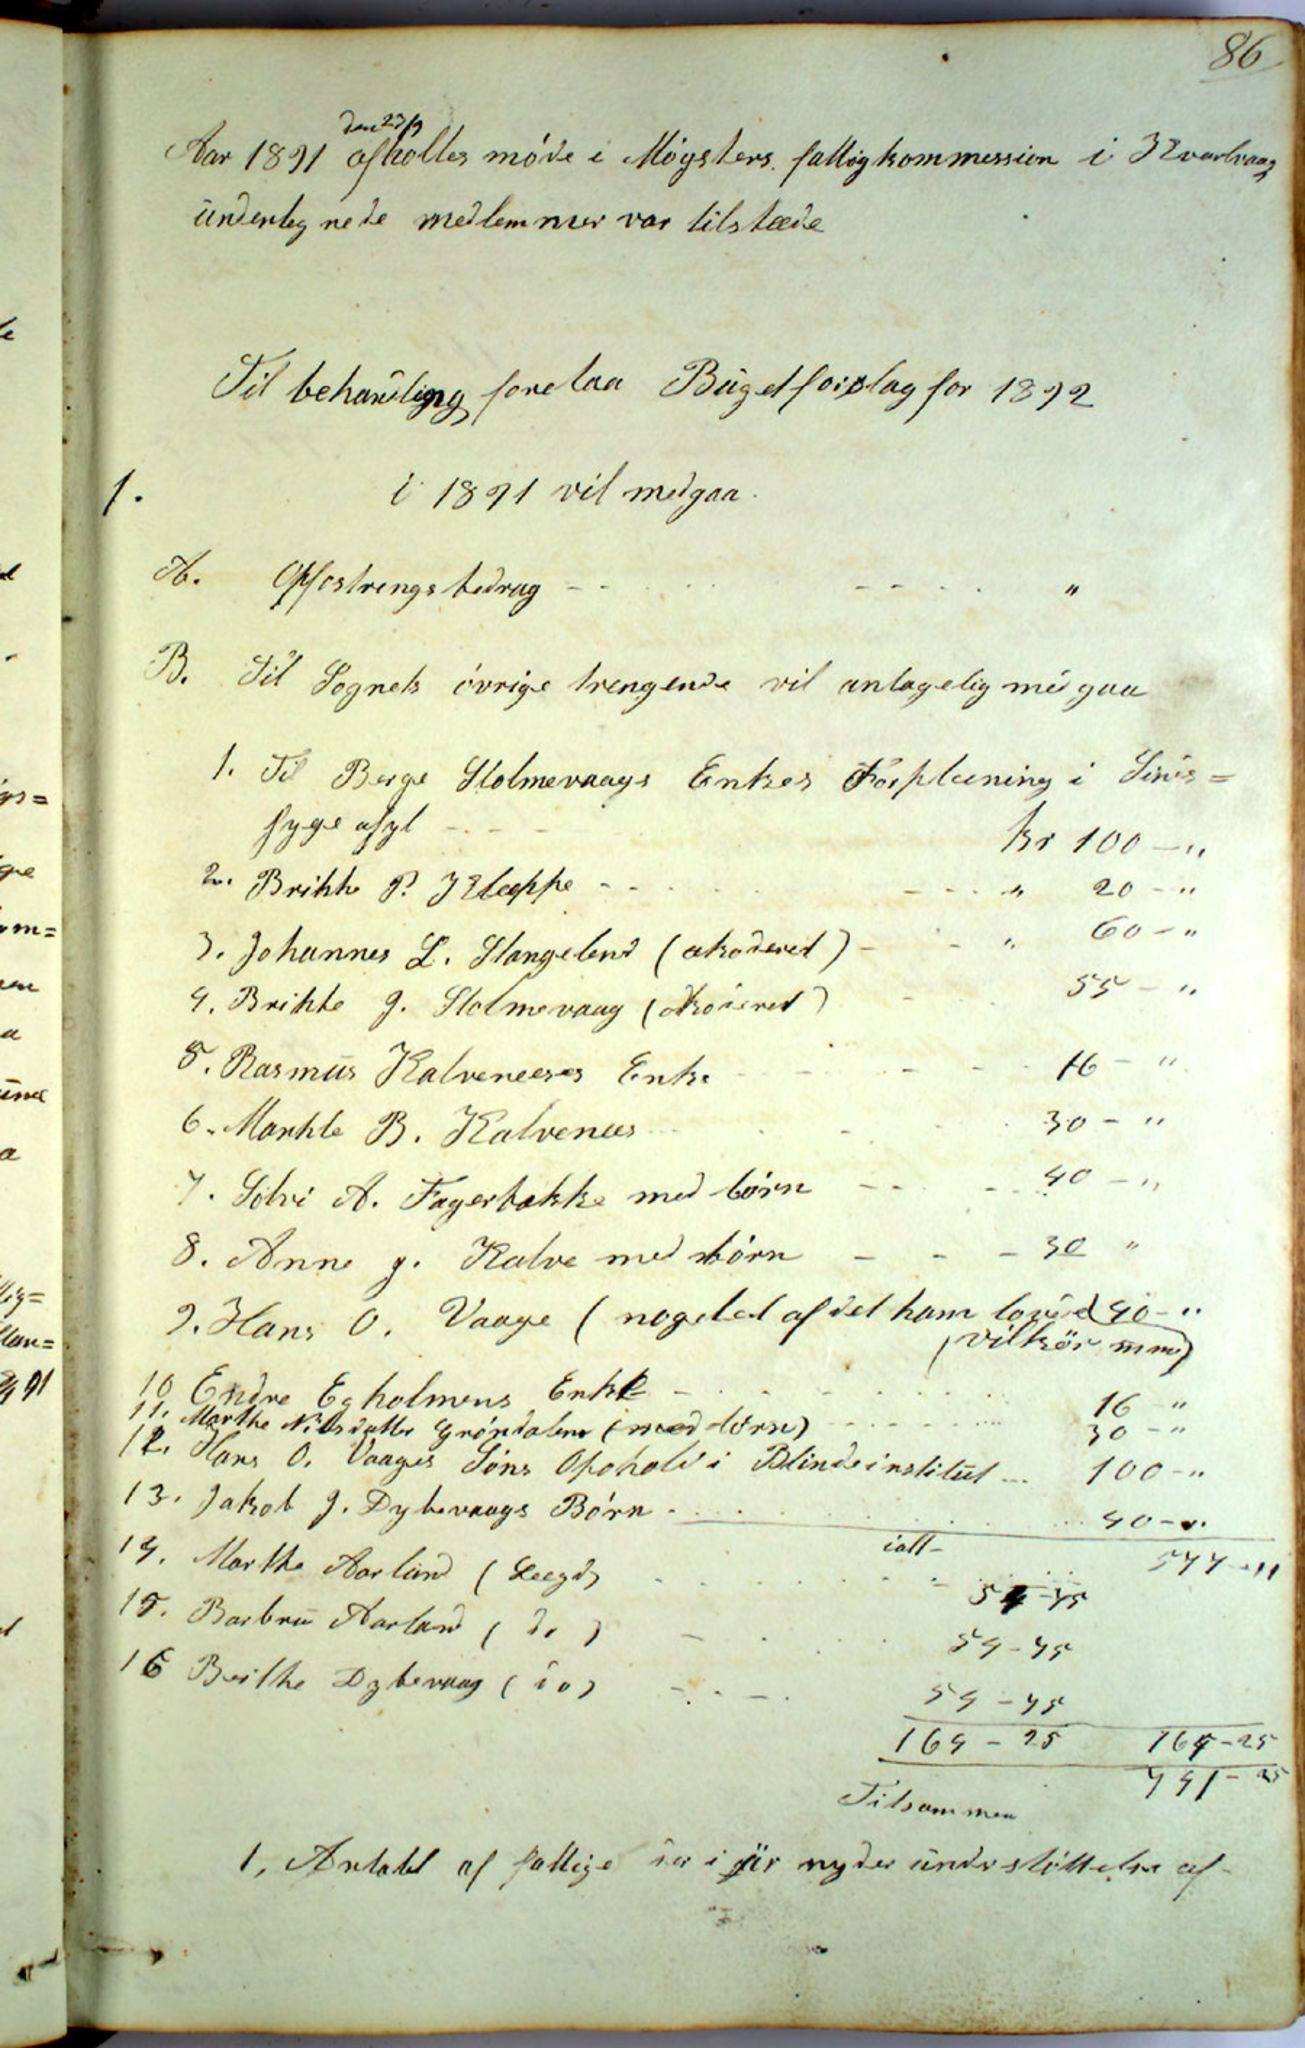 86
den 23/9
Aar 1891 afholtes møde i Møgsters fattigkommession i Kvarlvaag
underteg nede medlemmer var tilstæde
Til behandling forelaa Bügetforslag for 1892
1. i 1891 vil medgaa.
A. Opfostrengsbedrag - - - - - "
B. Til Sognets øvrige trengende vil antagelig medgaa
1. Til Berge Stolmevaags Enkes Forpleening i Sinds=
syge asyl - - - kr 100 - "
2. Brithe P. Kleppe - - - - - " 20 - "
3. Johannes L. Stangeland (akoderet) - - " 60 - "
4. Brithe J. Stolmevaag (akoderet) - 55 - "
5. Rasmüs Kalveneeses Enke - - - 16 - "
6. Marthe B. Kalvenees - - 30 - "
7. Solvi A. Fagerbakke med børn - - - 40 - "
8. Anne J. Kalve med børn - - - 30 "
9. Hans O. Vaage (nogetel af det ham lovede 40 - "
(vilkør mm)
10 Endre Egholmens Enke - - - 16 - "
11. Marthe Nilsdatter Grøndalen (med børn) - - - 30 - "
12. Hans O. Vaages Søns Ophold i Blindeinstitut ... 100 - "
13. Jakob J. Dybevaags Børn - - - 40 - "
ialt - 577 - "
14. Marthe Aarland (Leegd) - - - 54-75
15. Barbru Aarland (do) - - 54-75
16 Berthe Dybevaag (do) - - - 54-75
164 - 25 164-25
Tilsammen 741-25
1, Antabl af fattige der i år nyder understøttelse af-